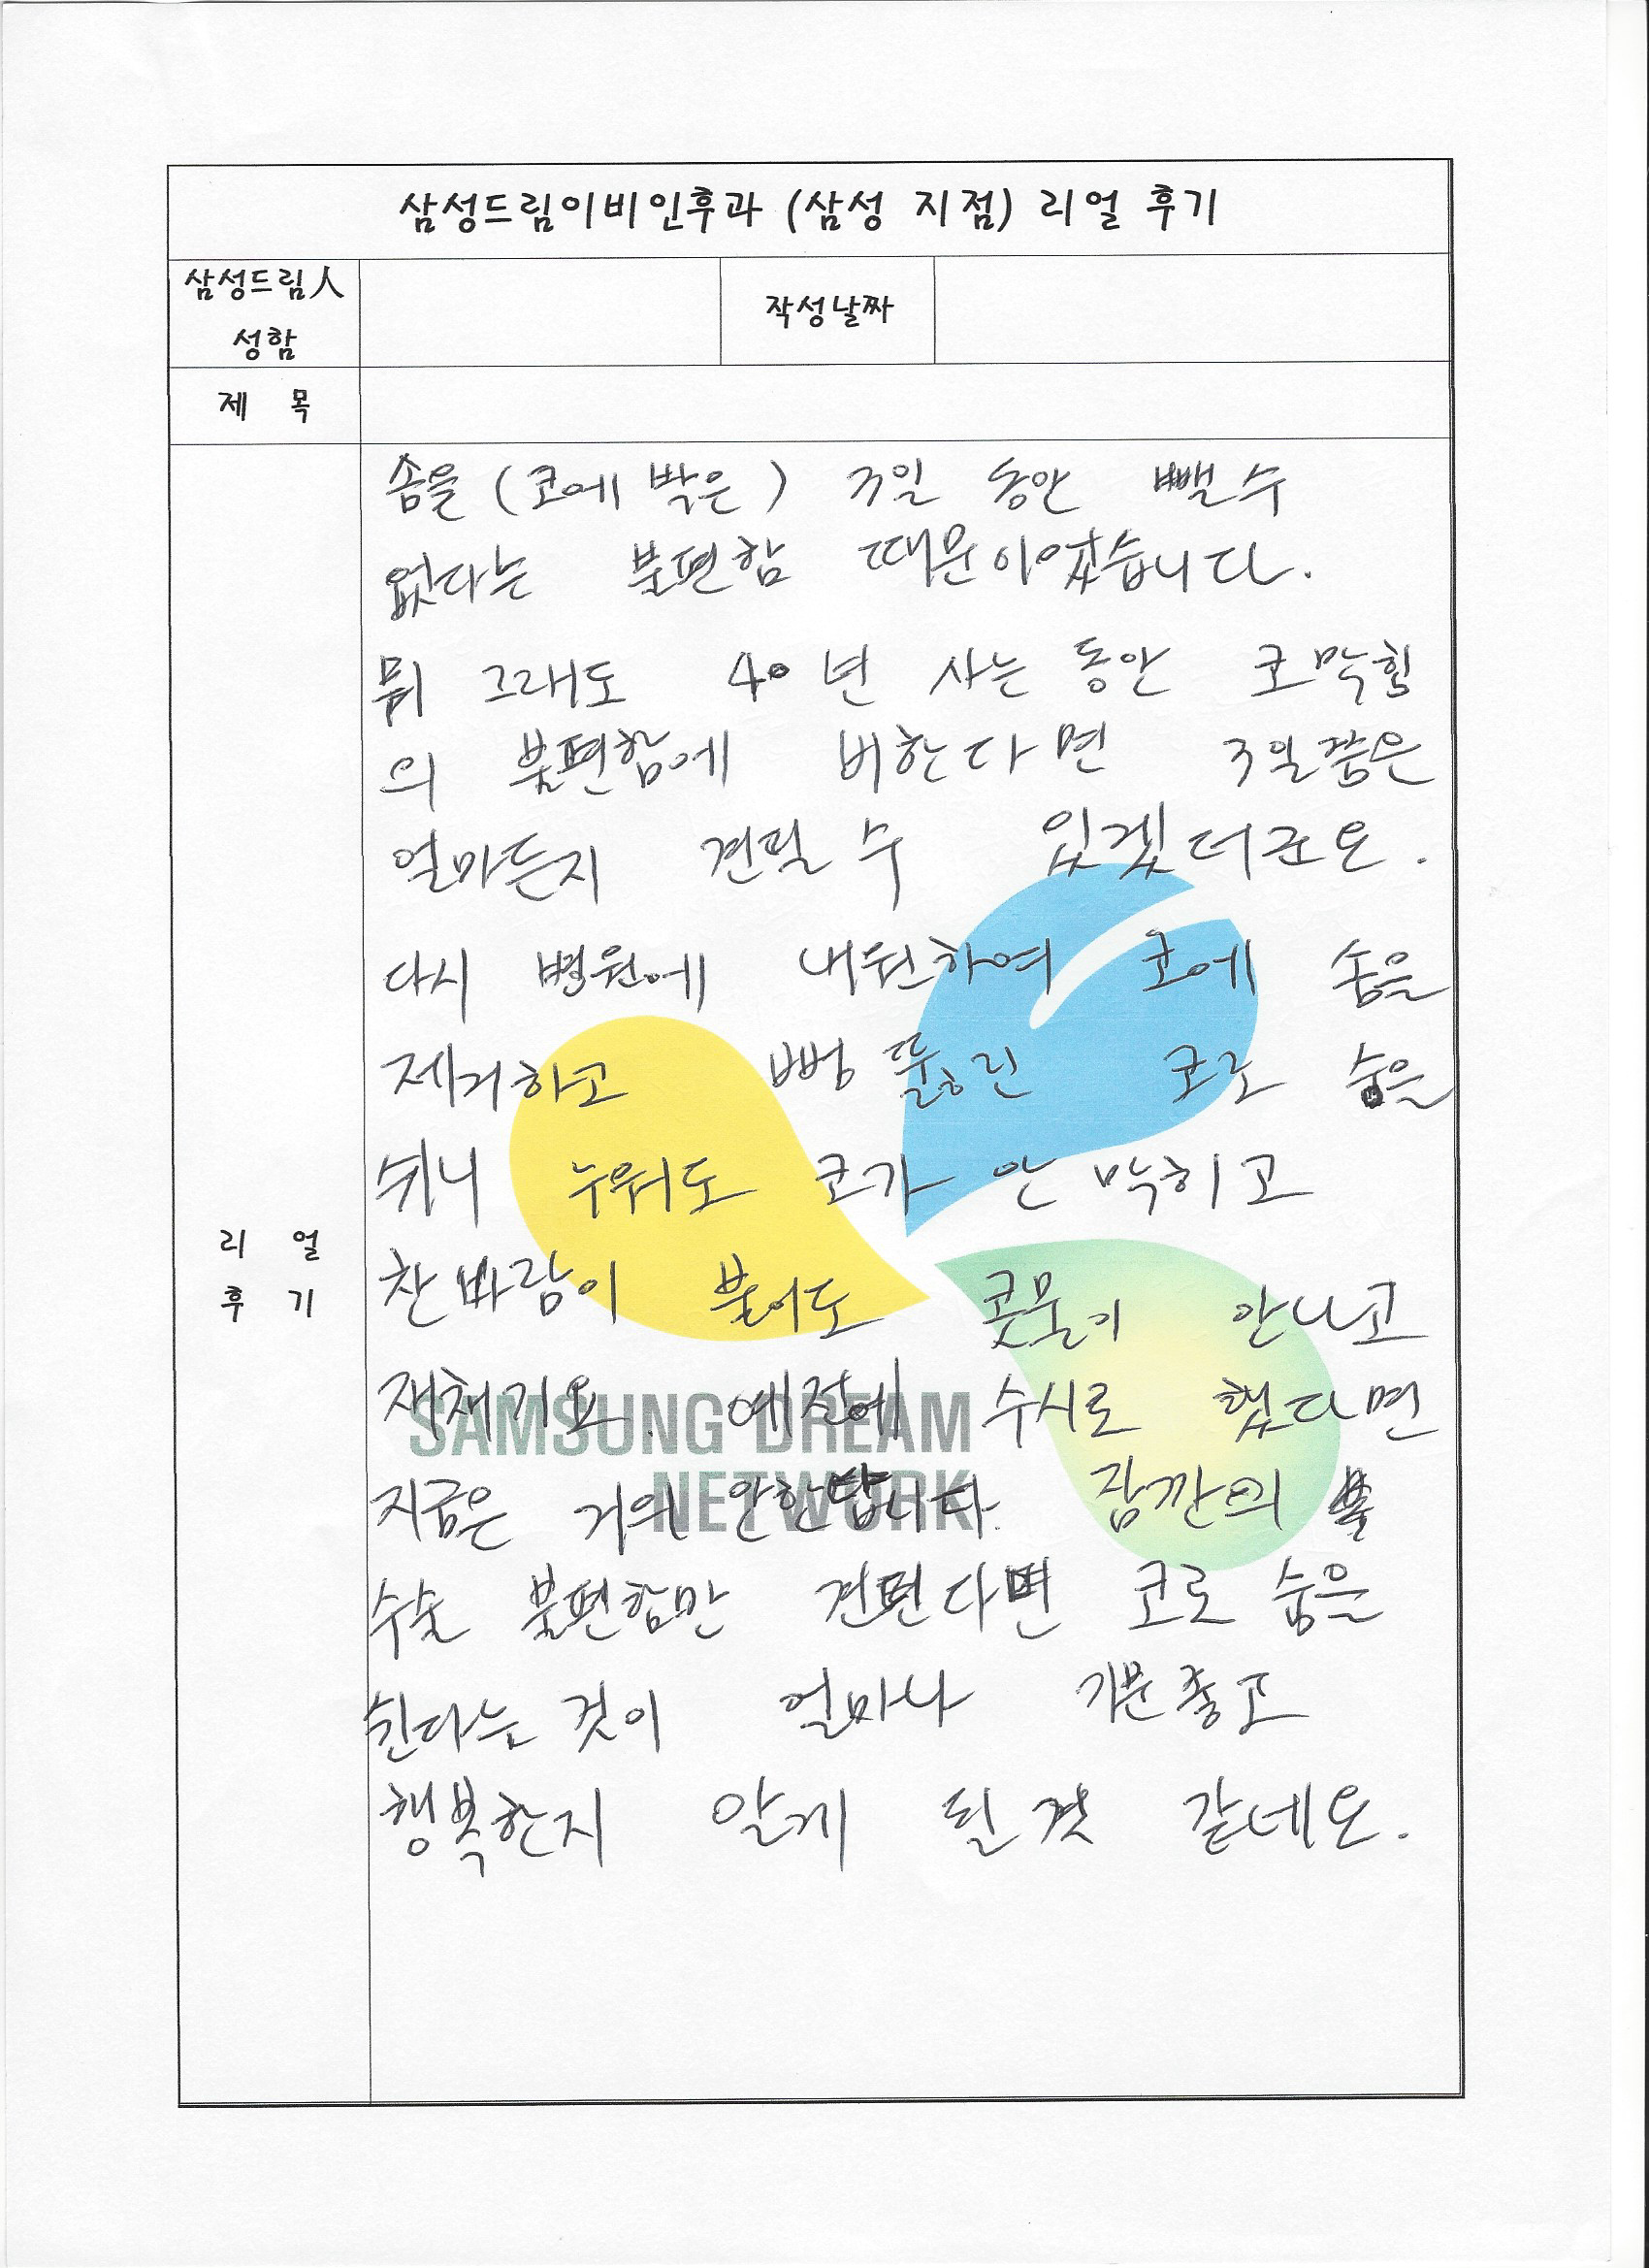 삼성드림이비인후과 (삼성 지점) 리얼 후기
삼성드림人
성함
작성날짜
제 목
솜을 (코에 박은) 3일 동안 뺄수
없다는 불편함 때문이었습니다.
뭐 그래도 40년 사는 동안 코막힘
의 불편함에 비한다면 3일쯤은
얼마든지 견딜 수 있겠더군요.
다시 병원에 내원하여 코에 솜을
제거하고 뻥 뚫린 코로 숨을
쉬니 누워도 코가 안 막히고
찬바람이 불어도 콧물이 안나고
재채기요. 예전에 수시로 했다면
지금은 거의 안한답니다. 잠깐의
수술 불편함만 견딘다면 코로 숨을
쉰다는 것이 얼마나 기분좋고
행복한지 알게 될 것 같네요.
리 얼
후 기
SAMSUNG DREAM
NETWORK